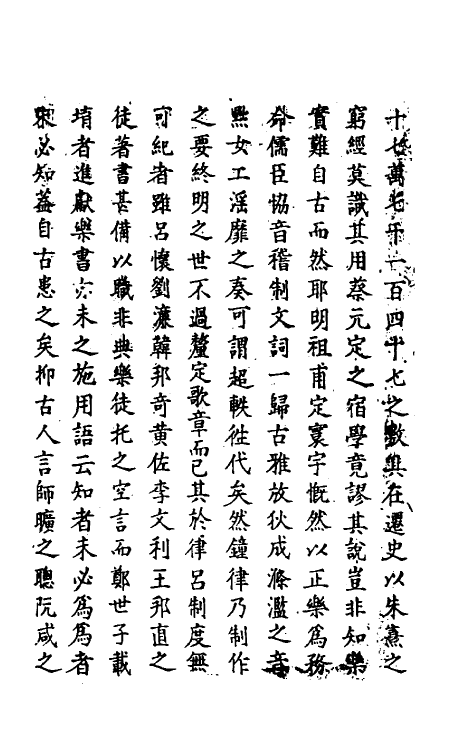 十七萬七千一百四十七之數具在遷史以朱熹之
窮經莫識其用蔡元定之宿學竟謬其說豈非知樂
實難自古而然耶明祖甫定寰宇慨然以正樂為務
命儒臣恊音稽制文詞一歸古雅放狄成滌濫之音
黜女工滛靡之奏可謂超軼徃代矣然鐘律乃制作
之要終明之世不過釐定歌章而已其於律呂制度無
可紀者雖呂懷劉濂韓邦奇黃佐李文利王邦直之
徒著書甚備以職非典樂徒托之空言而鄭世子載
堉者進獻樂書亦未之施用語云知者未必為為者
未必知葢自古患之矣抑古人言師曠之聰阮咸之